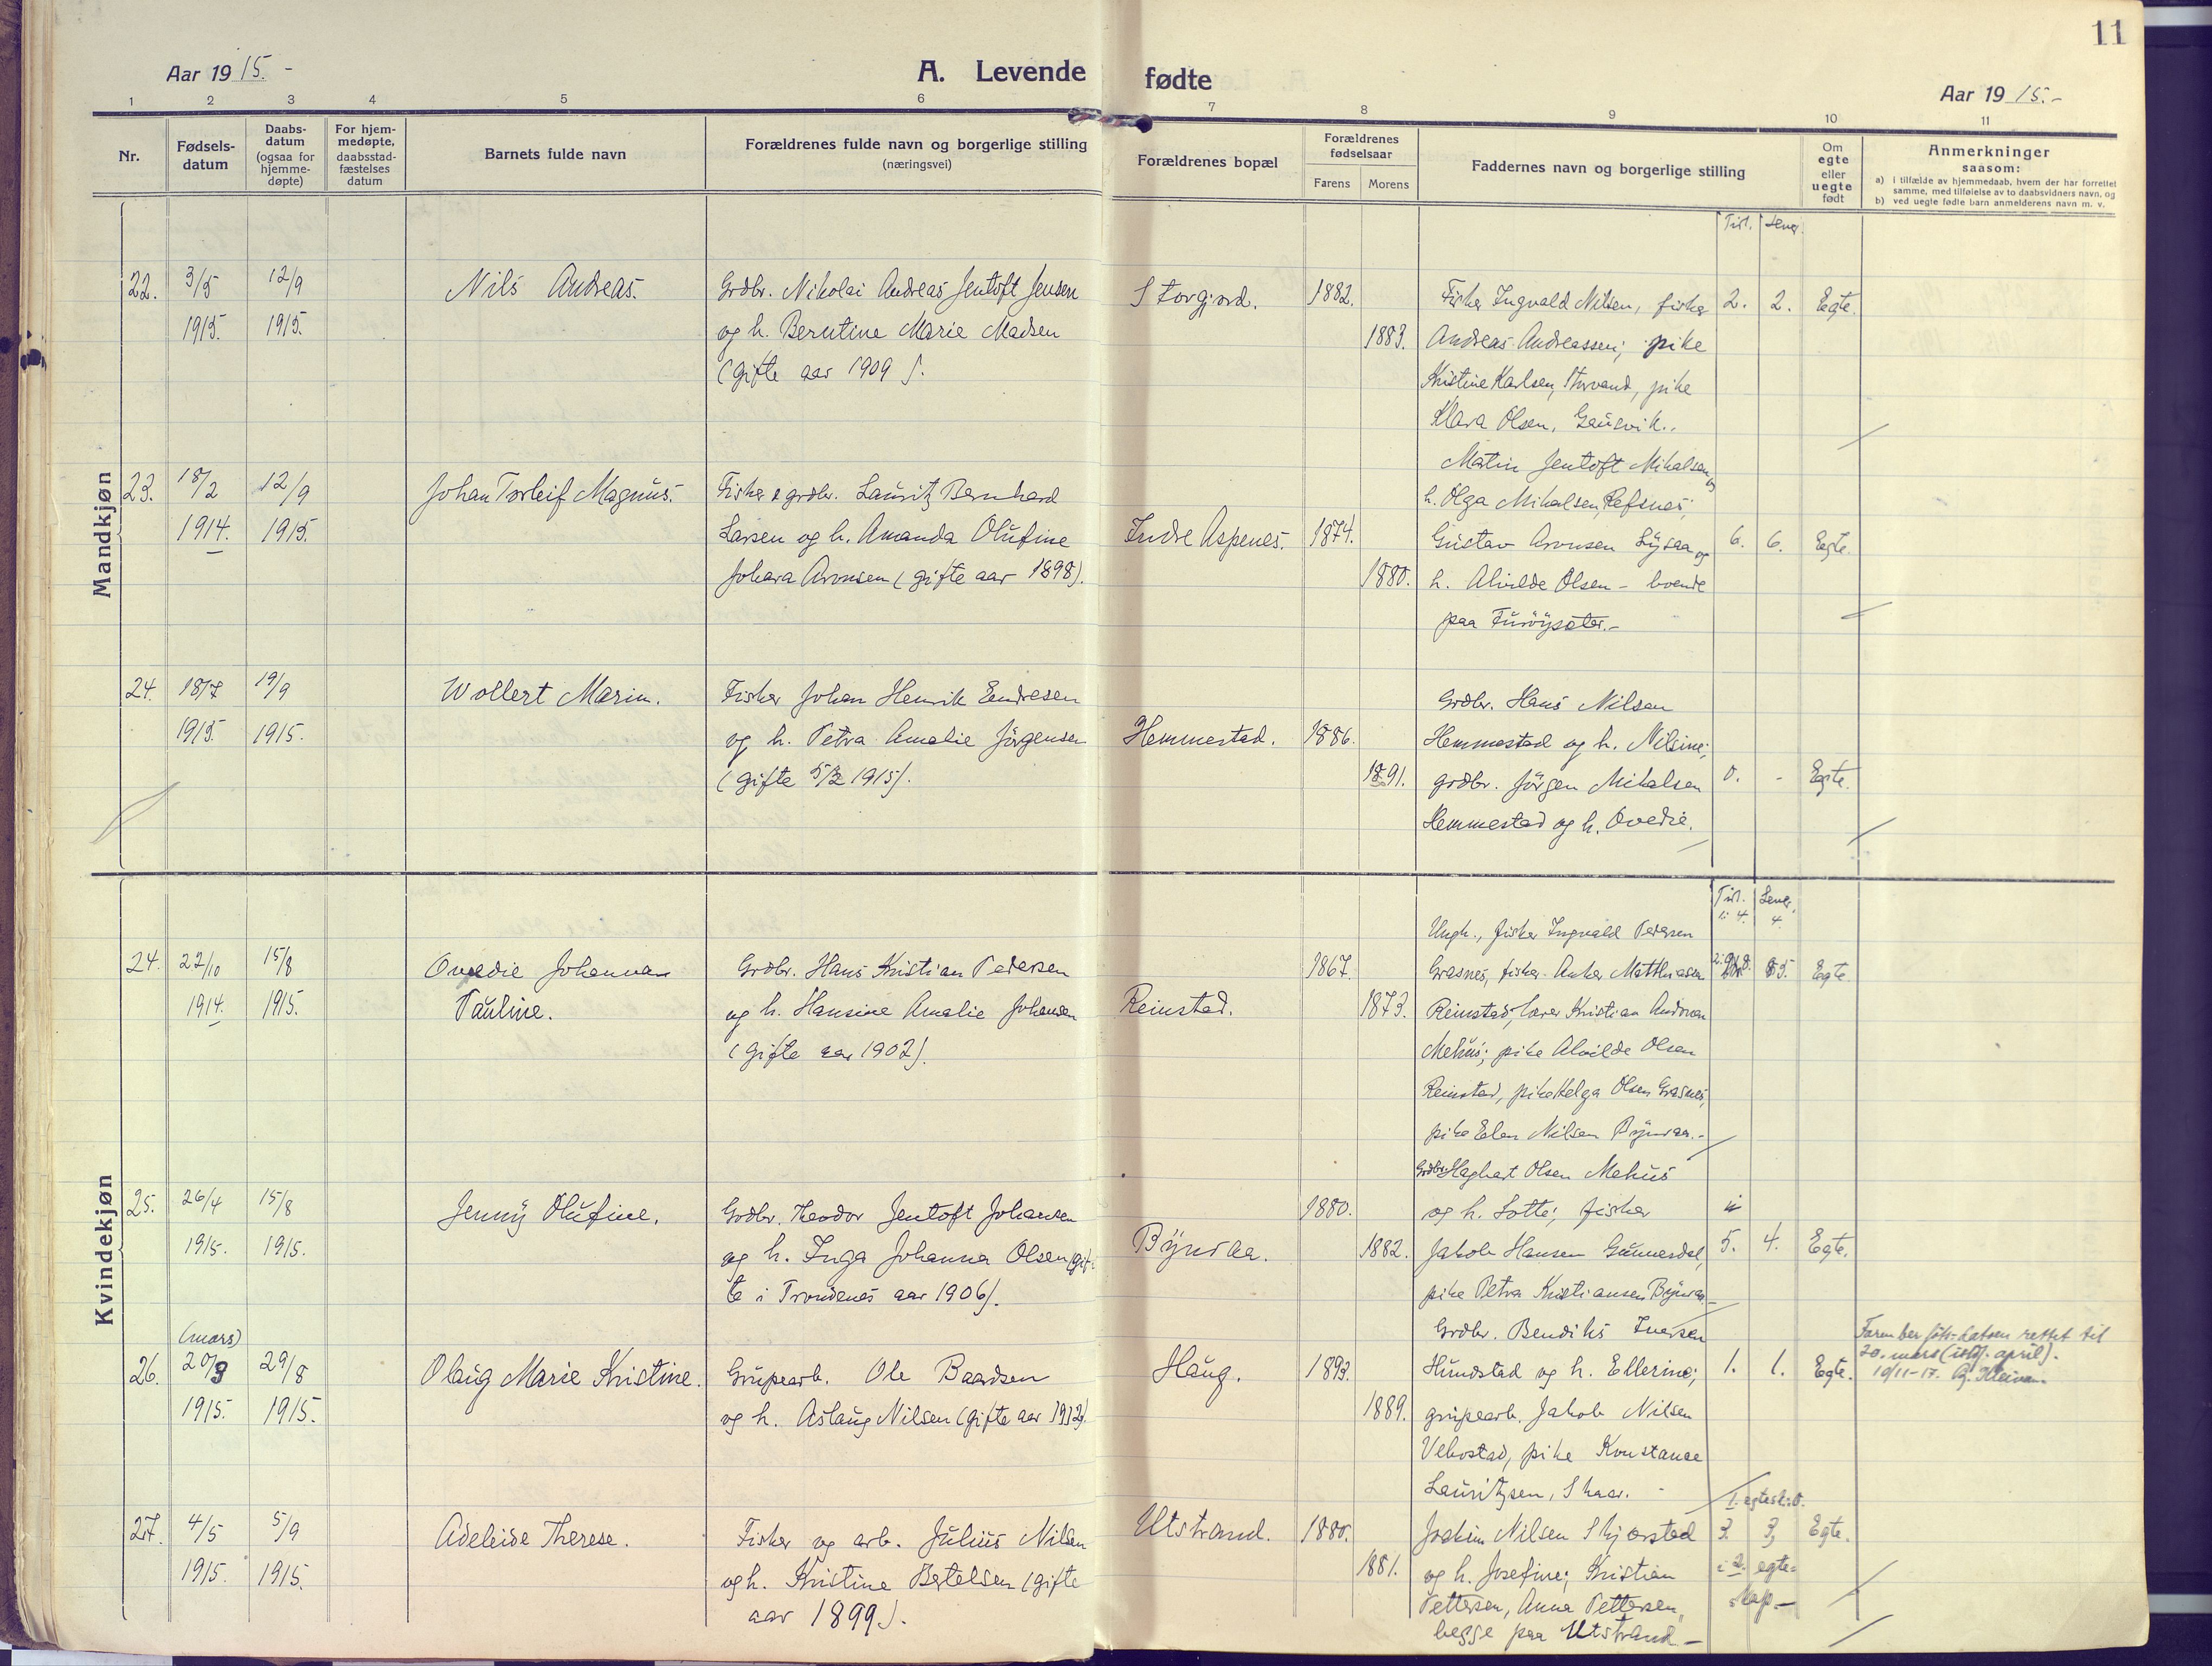 11
Aar 1915.-
A. Levende fødte
Aar 1915.-
1 2 3 4 5 6 7 8 9 10 11
Nr.
Fødsels-
datum
Daabs-
datum
(ogsaa for
hjemme-
døpte)
For hjem-
medøpte,
daabsstad-
fæstelses
datum
Barnets fulde navn
Forældrenes fulde navn og borgerlige stilling
(næringsvei)
Forældrenes bopæl
Forældrenes
fødselsaar
Farens
Morens
Faddernes navn og borgerlige stilling
Om
egte
eller
uegte
født
Anmerkninger
saasom:
a) i tilfælde av hjemmedaab, hvem der har forrettet
samme, med tilføielse av to daabsvidners navn, og
b) ved uegte fødte barn anmelderens navn m. v.
Mandkjøn
22.
3/5
1915.
12/9
1915.
Nils Andreas.
Grdbr. Nikolai Andreas Jentoft Jensen
og h. Berntine Marie Madsen
(gifte aar 1909).
Storjord.
1882.
1883.
Fisker Ingvald Nilsen, fisker
Andreas Andreassen; pike
Kristine Karlsen, Storvand, pike
Klara Olsen, Gausvik.
2. 2. Egte.
23.
18/2
1914.
12/9
1915.
Johan Torleif Magnus.
Fisker & grdbr. Lauritz Bernhard
Larsen og h. Amanda Olufine
Johara Aronsen (gifte aar 1898).
Indre Aspenes.
1874.
1880.
Matin Jentoft Mikalsen og
h. Olga Mikalsen, Refsnes;
Gustav Aronsen Lysaa og
h. Alvilde Olsen - boende
paa Furöysater.-
6. 6. Egte.
24.
18/7
1915.
19/9
1915.
Wollert Marin.
Fisker Johan Henrik Endresen
og h. Petra Amalie Jörgensen
(gifte 5/2 1915).
Hemmestad.
1886.
1891.
Grdbr. Hans Nilsen
Hemmestad og h. Nilsine;
grdbr. Jörgen Mikalsen
Hemmestad og h. Ovedie.
0. - Egte.
Kvindekjøn
24.
22/10
1914.
15/8
1915.
Ovedie Johanna
Pauline.
Grdbr. Hans Kristian Pedersen
og h. Hansine Amalie Johansen
(gifte aar 1902).
Reinstad.
1867.
1873.
Ungk., fisker Ingvald Pedersen
Grasnes, fisker Anker Matthiasen
Reinstad; lærer Kristian Andorsen
Mehus; pike Alvilde Olsen
Reinstad, pike Helga Olsen Grasnes,
pike Elen Nilsen
Egte.
25.
26/4
1915.
15/8
1915.
Jenny Olufine.
Grdbr. Theodor Jentoft Johansen
og h. Inga Johanna Olsen (gif-
te i Trondenes aar 1906).
1880.
1882.
Grdbr. Haghart Olsen Mehus
og h. Lotte; fisker
Jakob Hansen Gunnesdal,
pike Petra Kristiansen
5. 4. Egte.
26.
(mars)
20/3
1915.
29/8
1915.
Olaug Marie Kristine.
Grupearb. Ole Baardsen
og h. Aslaug Nilsen (gifte aar 1912)
Haug.
1893.
1889.
Grdbr. Bendiks Iversen
Hundstad og h. Ellerine;
grupearb. Jakob Nilsen
Vebostad, pike Konstanse
Lauritzsen, Skaar.
1. 1. Egte.
20. mars (istf. april).
19/11-17.
27.
4/5
1915.
5/9
1915.
Adeleide Therese.
Fisker og arb. Julius Nilsen
og h. Kristine Bertelsen (gifte
aar 1899).
Utstrand.
1880.
1881.
Joakim Nilsen Skjærstad
og h. Josefine; Kristian
Pettersen, Anna Pettersen,
begge paa Utstrand.-
3. 3. Egte.
i 2. egte-
skap.-